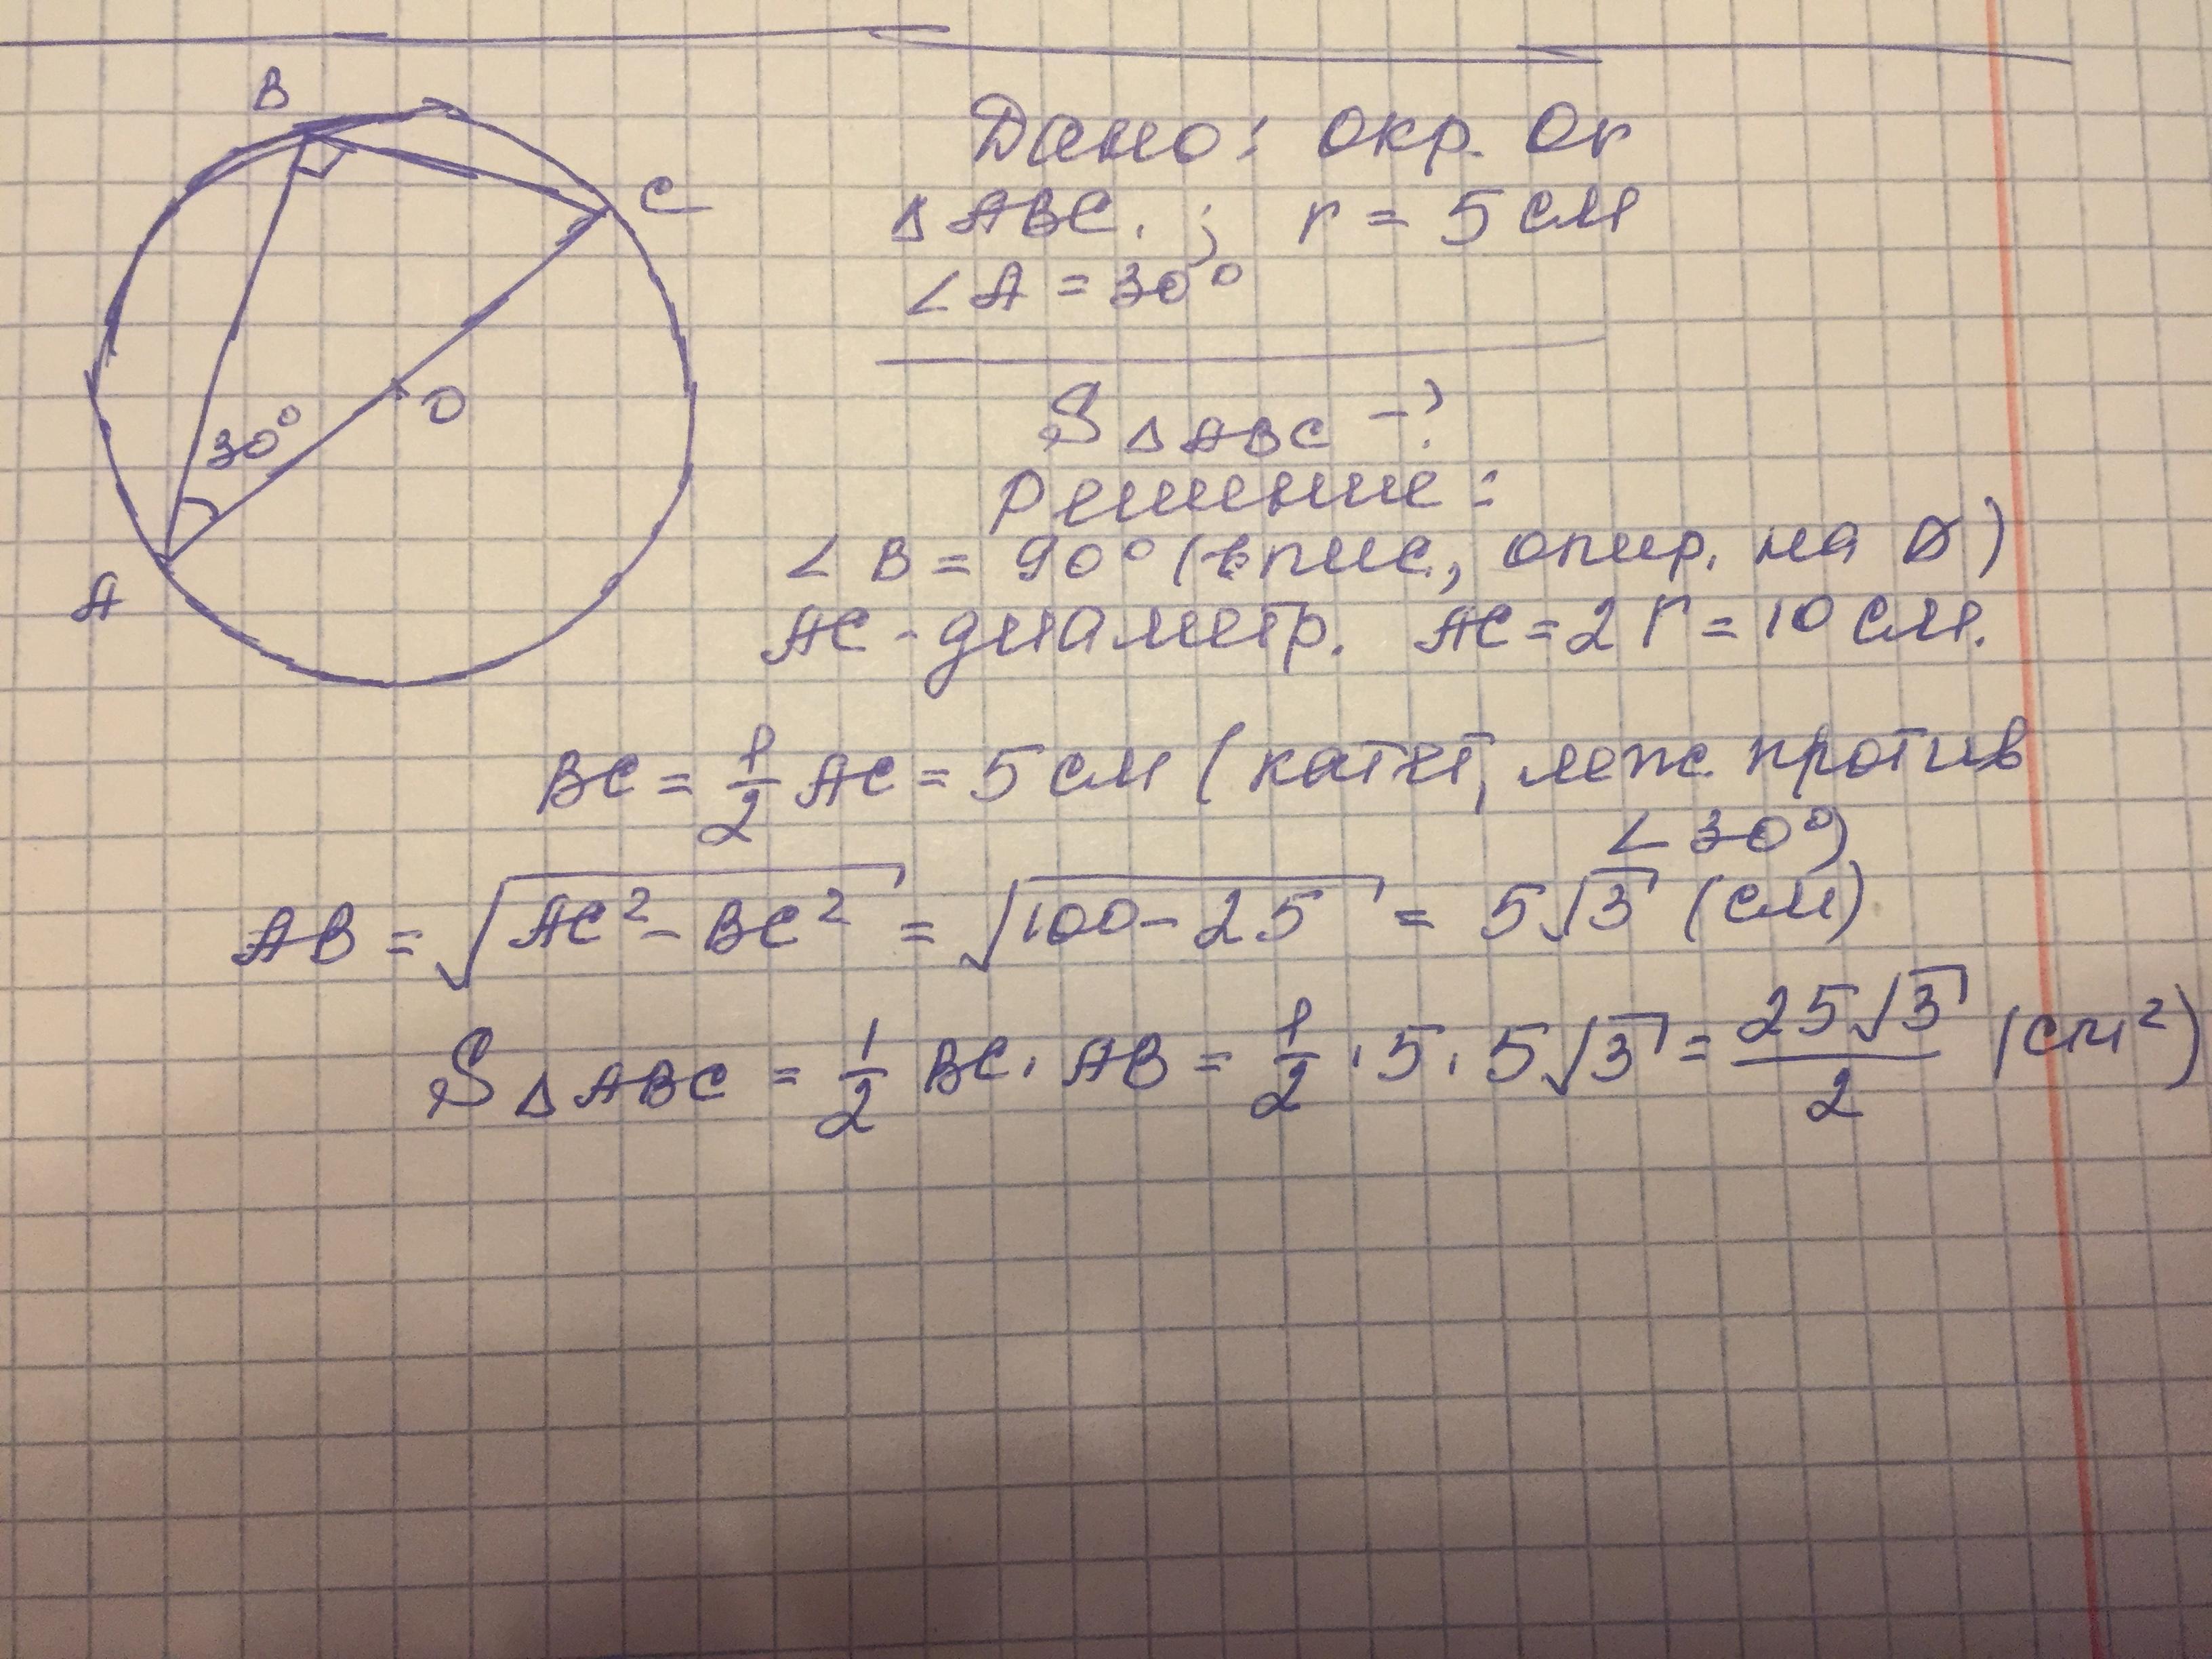 B
C
30°
O
A
Дано: окр. Or
△ABC. ; r = 5 см
∠A = 30°
S△ABC -?
Решение:
∠B = 90° (впис., опир. на Ø)
AC - диаметр. AC = 2r = 10 см.
BC = 1/2 AC = 5 см (катет, леж. против
∠30°)
AB = √(AC² - BC²) = √(100 - 25) = 5√3 (см)
S△ABC = 1/2 BC · AB = 1/2 · 5 · 5√3 = 25√3/2 (см²)